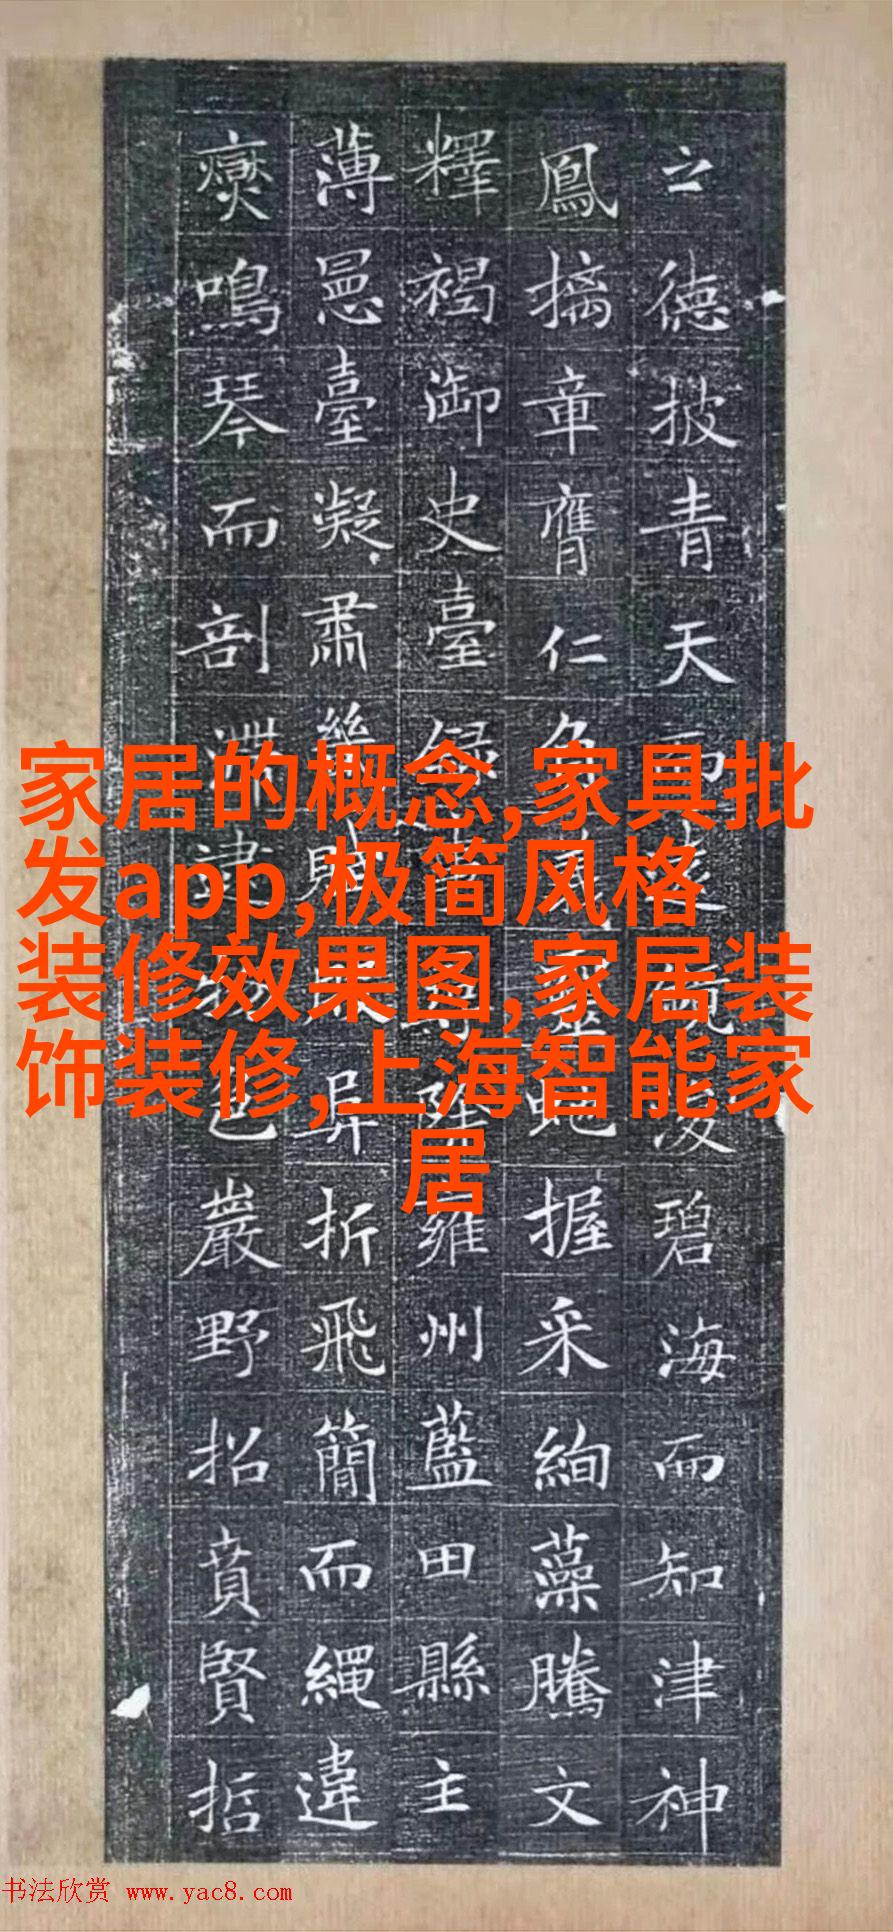 之德披青天而凌碧海而知津神
鳳摛章膺仁握采絢藻騰文
釋褐御史臺雍州藍田縣主
薄臺凝肅折飛簡而繩違
鳴琴而剖巖野招賁賢哲
家居的概念,家具批
发app,极简风格
装修效果图,家居装
饰装修,上海智能家
居
书法欣赏 www.yac8.com